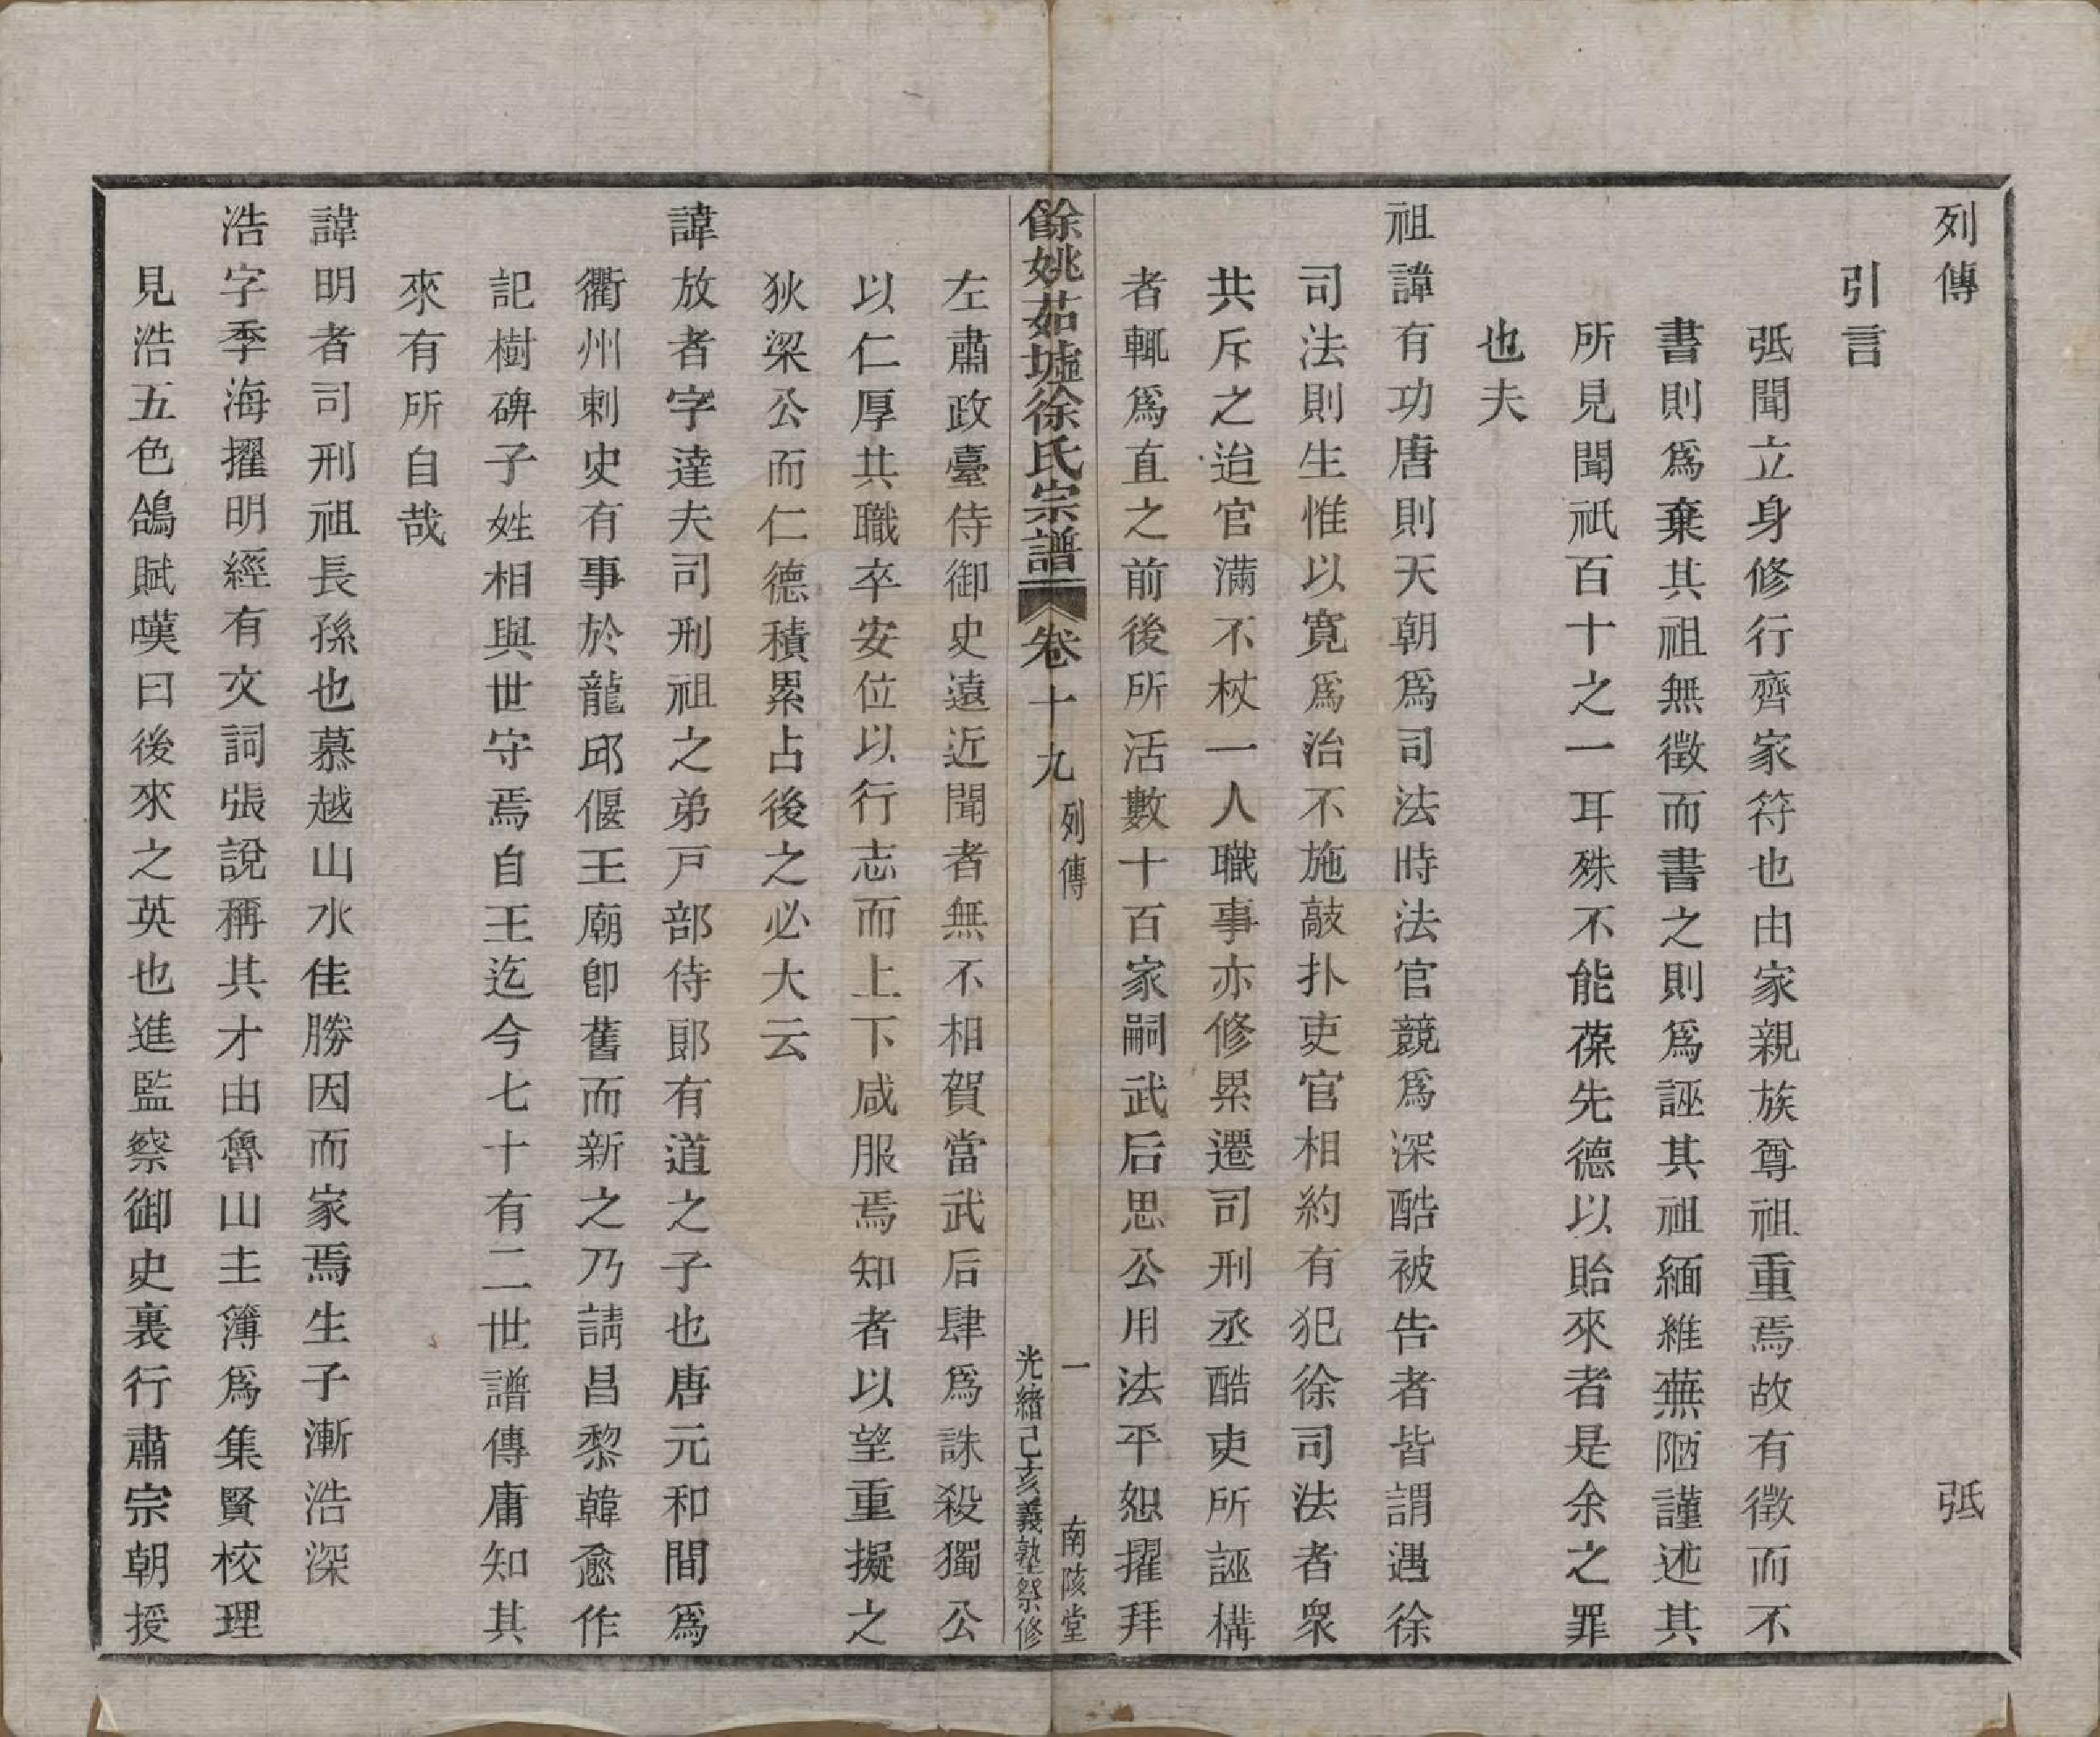 列傳　弤
引言
弤聞立身修行齊家符也由家親族尊祖重焉故有徵而不
書則爲棄其祖無徵而書之則爲誣其祖緬維蕪陋謹述其
所見聞祇百十之一耳殊不能葆先德以貽來者是余之罪
也夫
祖諱有功唐則天朝爲司法時法官競爲深酷被告者皆謂遇徐
司法則生惟以寬爲治不施敲扑吏官相約有犯徐司法者衆
共斥之迨官滿不杖一人職事亦修累遷司刑丞酷吏所誣構
者輒爲直之前後所活數十百家嗣武后思公用法平恕擢拜
餘姚茹墟徐氏宗譜　卷十九　列傳　一　南陔堂　光緒己亥義塾祭修
左肅政臺侍御史遠近聞者無不相賀當武后肆爲誅殺獨公
以仁厚共職卒安位以行志而上下咸服焉知者以望重擬之
狄梁公而仁德積累占後之必大云
諱放者字達夫司刑祖之弟戸部侍郎有道之子也唐元和間爲
衢州刺史有事於龍邱偃王廟卽舊而新之乃請昌黎韓愈作
記樹碑子姓相與世守焉自王迄今七十有二世譜傳庸知其
來有所自哉
諱明者司刑祖長孫也慕越山水佳勝因而家焉生子漸浩深
浩字季海擢明經有文詞張說稱其才由魯山主簿爲集賢校理
見浩五色鴿賦嘆曰後來之英也進監察御史裏行肅宗朝授